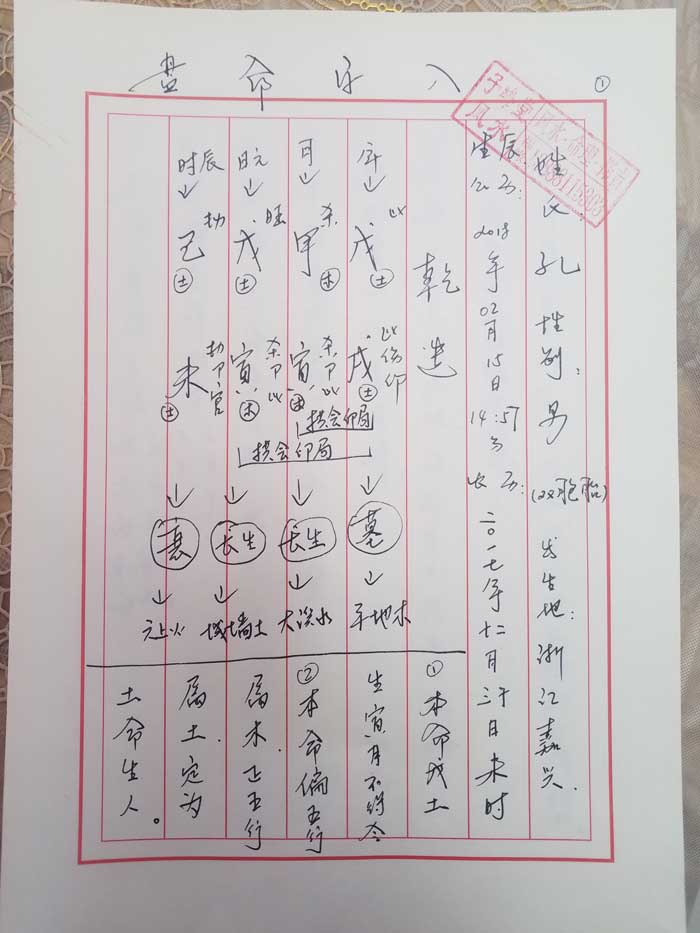 ①
八字命盘
姓氏:孔 性别:男(双胞胎) 出生地:浙江嘉兴.
生辰公历:2018年02月15日14:57分 农历:二〇一七年十二月三十日未时
乾造
年 戊 比 土
戌 比伤印 土
墓
平地木
月 甲 杀 木
寅 杀卩比 木
长生
大溪水
日元 戊 旺 土
寅 杀卩比 木
长生
城墙土
时辰 己 劫 土
未 劫卩官 土
衰
天上火
拱会印局
拱会印局
①本命戊土
生寅月不得令
②本命偏五行
属木.正五行
属土.定为
土命生人。
风水